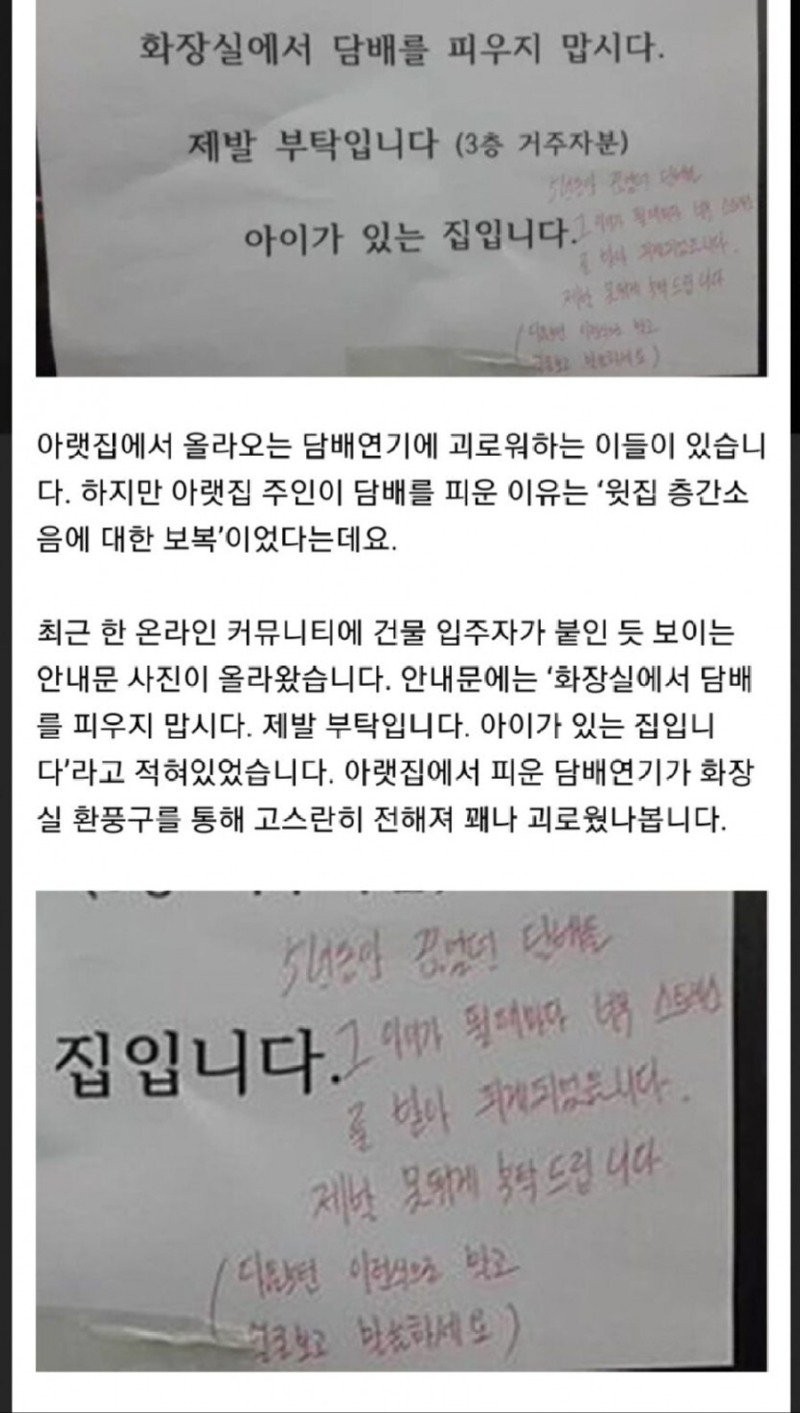 화장실에서 담배를 피우지 맙시다.
제발 부탁입니다 (3층 거주자분)
아이가 있는 집입니다.
5년동안 끊었던 담배를
그 아이가 뛸때마다 너무 스트레스
를 받아 피게되었습니다.
제발 못뛰게 부탁드립니다
(다음부턴 이런식으로 말고
얼굴보고 말씀하세요)
아랫집에서 올라오는 담배연기에 괴로워하는 이들이 있습니
다. 하지만 아랫집 주인이 담배를 피운 이유는 ‘윗집 층간소
음에 대한 보복’이었다는데요.
최근 한 온라인 커뮤니티에 건물 입주자가 붙인 듯 보이는
안내문 사진이 올라왔습니다. 안내문에는 ‘화장실에서 담배
를 피우지 맙시다. 제발 부탁입니다. 아이가 있는 집입니
다’라고 적혀있었습니다. 아랫집에서 피운 담배연기가 화장
실 환풍구를 통해 고스란히 전해져 꽤나 괴로웠나봅니다.
5년동안 끊었던 담배를
집입니다.
그 아이가 뛸때마다 너무 스트레스
를 받아 피게되었습니다.
제발 못뛰게 부탁드립니다
(다음부턴 이런식으로 말고
얼굴보고 말씀하세요)